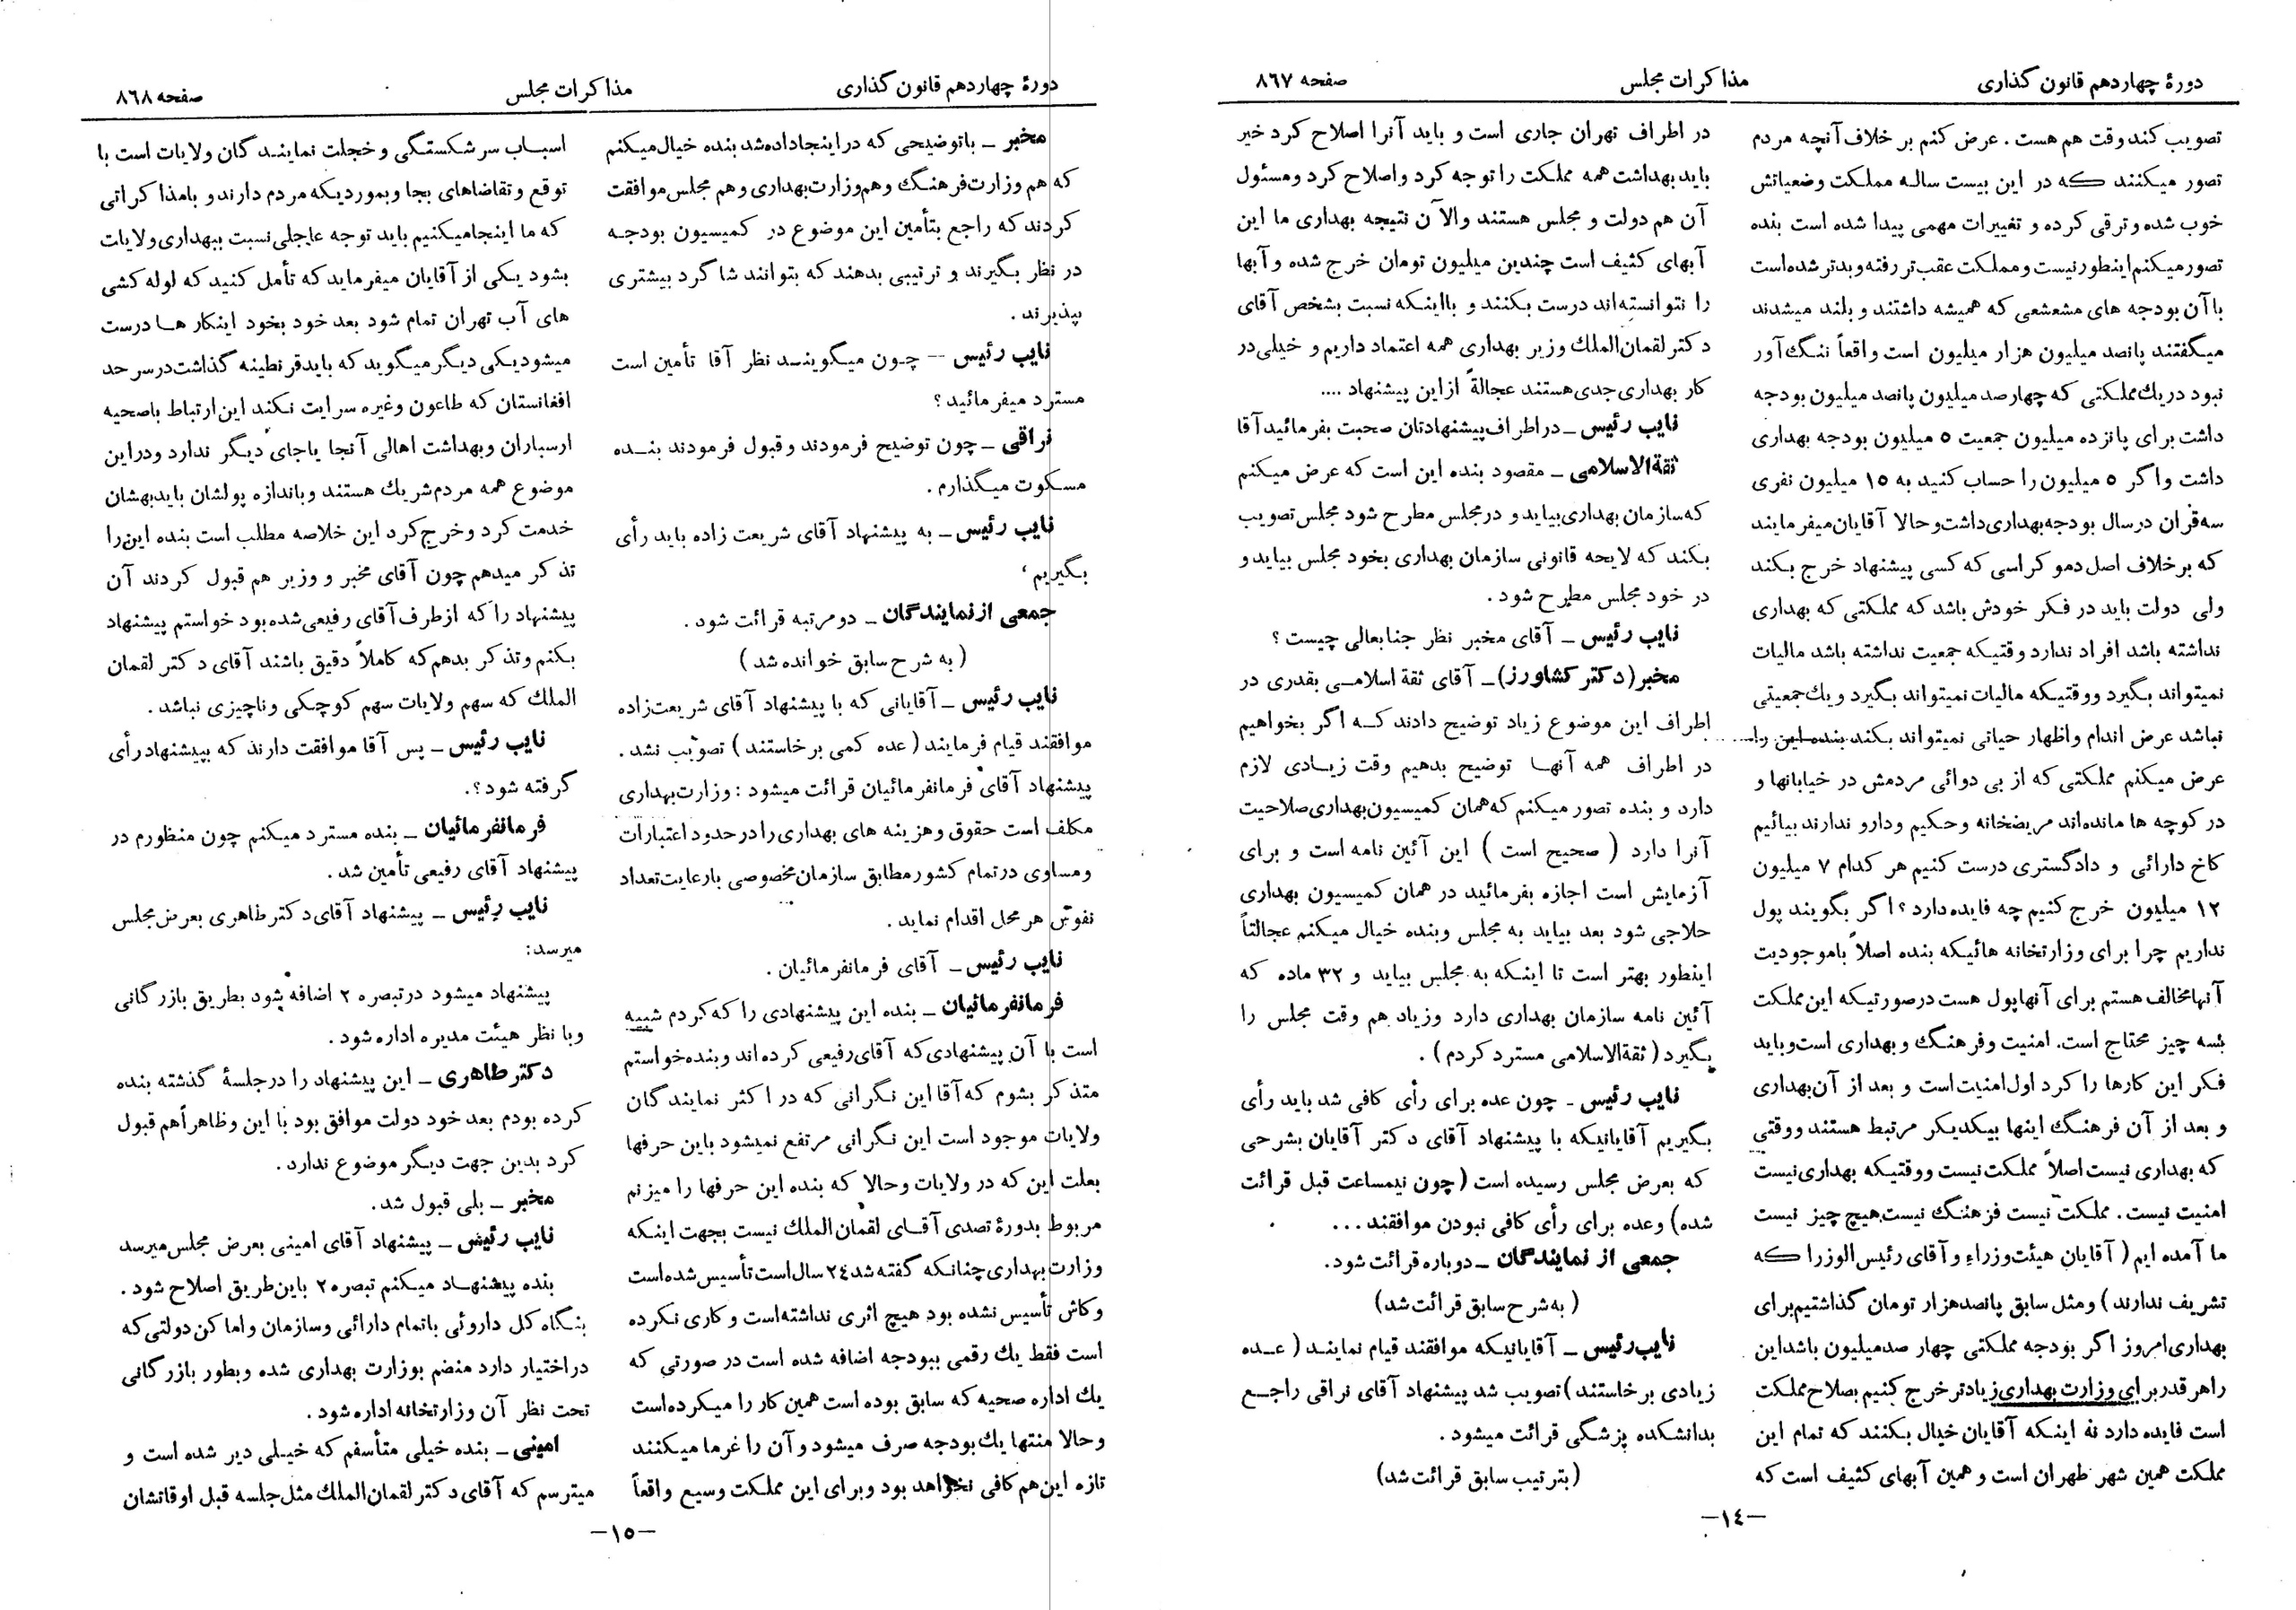 دورهٔ چهاردهم قانون گذاری
مذاکرات مجلس
صفحه ۸۶۷
تصویب کند وقت هم هست . عرض کنم بر خلاف آنچه مردم
تصور میکنند که در این بیست ساله مملکت وضعیاتش
خوب شده و ترقی کرده و تغییرات مهمی پیدا شده است بنده
تصور میکنم اینطور نیست و مملکت عقب‌تر رفته و بدتر شده‌است
با آن بودجه های مشعشعی که همیشه داشتند و بلند میشدند
میگفتند پانصد میلیون هزار میلیون است واقعاً ننگ آور
نبود در یك مملکتی که چهار صد میلیون پانصد میلیون بودجه
داشت برای پانزده میلیون جمعیت ۵ میلیون بودجه بهداری
داشت و اگر ۵ میلیون را حساب کنید به ۱۵ میلیون نفری
سه قران در سال بودجه بهداری داشت و حالا آقایان میفرمایند
که برخلاف اصل دموکراسی که کسی پیشنهاد خرج بکند
ولی دولت باید در فکر خودش باشد که مملکتی که بهداری
نداشته باشد افراد ندارد وقتیکه جمعیت نداشته باشد مالیات
نمیتواند بگیرد ووقتیکه مالیات نمیتواند بگیرد و یك جمعیتی
نباشد عرض اندام واظهار حیاتی نمیتواند بکند بنده این را
عرض میکنم مملکتی که از بی دوائی مردمش در خیابانها و
در کوچه ها مانده‌اند مریضخانه و حکیم ودارو ندارند بیائیم
کاخ دارائی و دادگستری درست کنیم هر کدام ۷ میلیون
۱۲ میلیون خرج کنیم چه فایده دارد؟ اگر بگویند پول
نداریم چرا برای وزارتخانه هائیکه بنده اصلاً باموجودیت
آنها مخالف هستم برای آنها پول هست در صورتیکه این مملکت
بسه چیز محتاج است. امنیت وفرهنگ و بهداری است و باید
فکر این کارها را کرد اول امنیت است و بعد از آن بهداری
و بعد از آن فرهنگ اینها بیکدیگر مرتبط هستند ووقتی
که بهداری نیست اصلاً مملکت نیست ووقتیکه بهداری نیست
امنیت نیست . مملکت نیست فرهنگ نیست هیچ چیز نیست
ما آمده ایم ( آقایان هیئت وزراء و آقای رئیس الوزرا که
تشریف ندارند ) ومثل سابق پانصد هزار تومان گذاشتیم برای
بهداری امروز اگر بودجه مملکتی چهار صد میلیون باشد این
را هر قدر برای وزارت بهداری زیادتر خرج کنیم بصلاح مملکت
است فایده دارد نه اینکه آقایان خیال بکنند که تمام این
مملکت همین شهر طهران است و همین آبهای کثیف است که
در اطراف تهران جاری است و باید آنرا اصلاح کرد خیر
باید بهداشت همه مملکت را توجه کرد و اصلاح کرد و مسئول
آن هم دولت و مجلس هستند والآن نتیجه بهداری ما این
آبهای کثیف است چندین میلیون تومان خرج شده و آبها
را نتوانسته‌اند درست بکنند و بااینکه نسبت بشخص آقای
دکتر لقمان الملك وزیر بهداری همه اعتماد داریم و خیلی در
کار بهداری جدی هستند عجالةً از این پیشنهاد ....
نایب رئیس ــ در اطراف پیشنهادتان صحبت بفرمائید آقا
ثقةالاسلامی ــ مقصود بنده این است که عرض میکنم
که سازمان بهداری بیاید و در مجلس مطرح شود مجلس تصویب
بکند که لایحه قانونی سازمان بهداری بخود مجلس بیاید و
در خود مجلس مطرح شود .
نایب رئیس ــ آقای مخبر نظر جنابعالی چیست ؟
مخبر(دکتر کشاورز) ــ آقای ثقة اسلامی بقدری در
اطراف این موضوع زیاد توضیح دادند که اگر بخواهیم
در اطراف همه آنها توضیح بدهیم وقت زیادی لازم
دارد و بنده تصور میکنم که همان کمیسیون بهداری صلاحیت
آنرا دارد ( صحیح است ) این آئین نامه است و برای
آزمایش است اجازه بفرمائید در همان کمیسیون بهداری
حلاجی شود بعد بیاید به مجلس وبنده خیال میکنم عجالتاً
اینطور بهتر است تا اینکه به مجلس بیاید و ۳۲ ماده که
آئین نامه سازمان بهداری دارد وزیاد هم وقت مجلس را
بگیرد ( ثقةالاسلامی مسترد کردم ) .
نایب رئیس ــ چون عده برای رأی کافی شد باید رأی
بگیریم آقایانیکه با پیشنهاد آقای دکتر آقایان بشرحی
که بعرض مجلس رسیده است (چون نیمساعت قبل قرائت
شده) وعده برای رأی کافی نبودن موافقند ...
جمعی از نمایندگان ــ دوباره قرائت شود.
( به شرح سابق قرائت شد)
نایب رئیس ــ آقایانیکه موافقند قیام نمایند ( عده
زیادی برخاستند ) تصویب شد پیشنهاد آقای نراقی راجع
بدانشکده پزشگی قرائت میشود .
(بترتیب سابق قرائت شد)
—۱٤—
دورهٔ چهاردهم قانون گذاری
مذاکرات مجلس
صفحه ۸۶۸
مخبر ــ باتوضیحی که در اینجا داده شد بنده خیال میکنم
که هم وزارت فرهنگ و هم وزارت بهداری وهم مجلس موافقت
کردند که راجع بتأمین این موضوع در کمیسیون بودجه
در نظر بگیرند و ترتیبی بدهند که بتوانند شاگرد بیشتری
بپذیرند .
نایب رئیس ــ چون میگویند نظر آقا تأمین است
مسترد میفرمائید ؟
نراقی ــ چون توضیح فرمودند و قبول فرمودند بنده
مسکوت میگذارم .
نایب رئیس ــ به پیشنهاد آقای شریعت زاده باید رأی
بگیریم ،
جمعی از نمایندگان ــ دو مرتبه قرائت شود .
( به شرح سابق خوانده شد )
نایب رئیس ــ آقایانی که با پیشنهاد آقای شریعت‌زاده
موافقند قیام فرمایند ( عده کمی برخاستند ) تصویب نشد .
پیشنهاد آقای فرمانفرمائیان قرائت میشود : وزارت بهداری
مکلف است حقوق و هزینه های بهداری را در حدود اعتبارات
ومساوی در تمام کشور مطابق سازمان مخصوصی بارعایت تعداد
نفوس هر محل اقدام نماید .
نایب رئیس ــ آقای فرمانفرمائیان .
فرمانفرمائیان ــ بنده این پیشنهادی را که کردم شبیه
است با آن پیشنهادی که آقای رفیعی کرده‌اند و بنده خواستم
متذکر بشوم که آقا این نگرانی که در اکثر نمایندگان
ولایات موجود است این نگرانی مرتفع نمیشود باین حرفها
بعلت این که در ولایات وحالا که بنده این حرفها را میزنم
مربوط بدورهٔ تصدی آقای لقمان الملك نیست بجهت اینکه
وزارت بهداری چنانکه گفته شد ۲٤ سال است تأسیس شده است
وکاش تأسیس نشده بود هیچ اثری نداشته‌است و کاری نکرده
است فقط یك رقمی ببودجه اضافه شده است در صورتی که
یك اداره صحیه که سابق بوده است همین کار را میکرده‌است
و حالا منتها یك بودجه صرف میشود و آن را غرما میکنند
تازه این هم کافی نخواهد بود و برای این مملکت وسیع واقعاً
اسباب سر شکستگی و خجلت نمایندگان ولایات است با
توقع و تقاضاهای بجا وبموردیکه مردم دارند و بامذاکراتی
که ما اینجا میکنیم باید توجه عاجلی نسبت ببهداری ولایات
بشود یکی از آقایان میفرماید که تأمل کنید که لوله کشی
های آب تهران تمام شود بعد خود بخود اینکار ها درست
میشود یکی دیگر میگوید که باید قرنطینه گذاشت در سرحد
افغانستان که طاعون وغیره سرایت نکند این ارتباط باصحیه
ارسباران وبهداشت اهالی آنجا یاجای دیگر ندارد ودر این
موضوع همه مردم شریك هستند و باندازه پولشان باید بهشان
خدمت کرد و خرج کرد این خلاصه مطلب است بنده این را
تذکر میدهم چون آقای مخبر و وزیر هم قبول کردند آن
پیشنهاد را که از طرف آقای رفیعی شده بود خواستم پیشنهاد
بکنم وتذکر بدهم که کاملاً دقیق باشند آقای دکتر لقمان
الملك که سهم ولایات سهم کوچکی وناچیزی نباشد .
نایب رئیس ــ پس آقا موافقت دارند که بپیشنهاد رأی
گرفته شود ؟.
فرمانفرمائیان ــ بنده مسترد میکنم چون منظورم در
پیشنهاد آقای رفیعی تأمین شد .
نایب رئیس ــ پیشنهاد آقای دکتر طاهری بعرض مجلس
میرسد:
پیشنهاد میشود در تبصره ۲ اضافه شود بطریق بازرگانی
وبا نظر هیئت مدیره اداره شود .
دکتر طاهری ــ این پیشنهاد را در جلسهٔ گذشته بنده
کرده بودم بعد خود دولت موافق بود با این وظاهراً هم قبول
کرد بدین جهت دیگر موضوع ندارد .
مخبر ــ بلی قبول شد.
نایب رئیس ــ پیشنهاد آقای امینی بعرض مجلس میرسد
بنده پیشنهاد میکنم تبصره ۲ باین طریق اصلاح شود .
بنگاه کل داروئی باتمام دارائی وسازمان و اماکن دولتی که
در اختیار دارد منضم بوزارت بهداری شده و بطور بازرگانی
تحت نظر آن وزارتخانه اداره شود .
امینی ــ بنده خیلی متأسفم که خیلی دیر شده است و
میترسم که آقای دکتر لقمان الملك مثل جلسه قبل اوقاتشان
—۱۵—